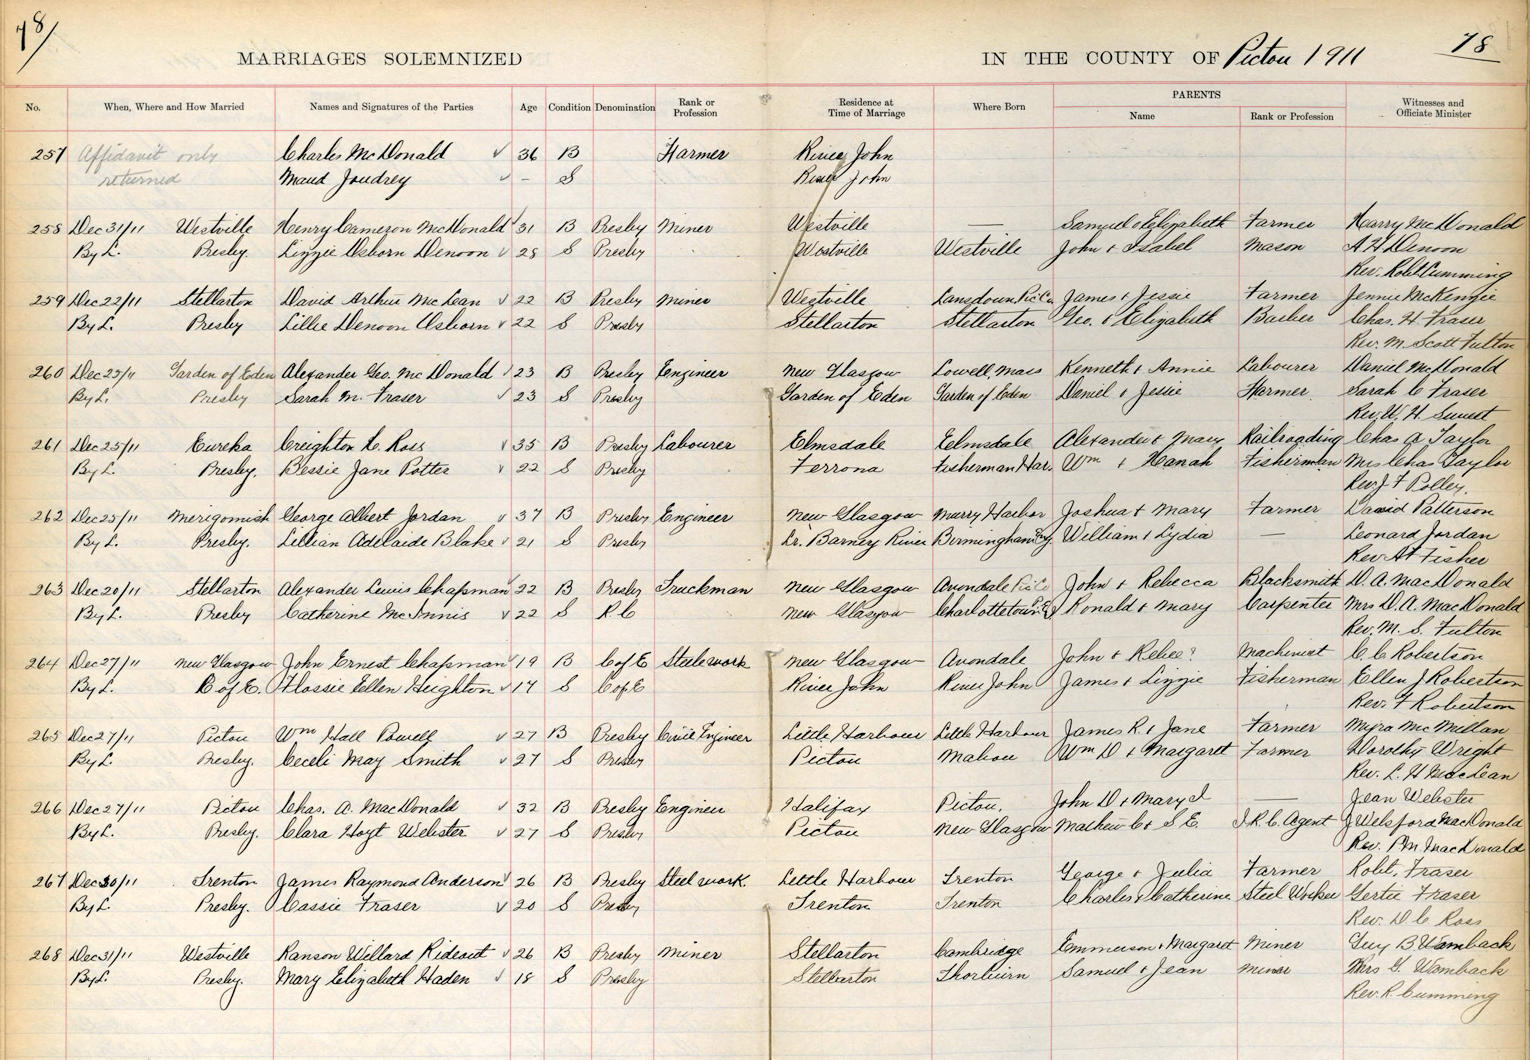 78/
78
MARRIAGES SOLEMNIZED IN THE COUNTY OF Pictou 1911
No. When, Where and How Married Names and Signatures of the Parties Age Condition Denomination Rank or Profession Residence at Time of Marriage Where Born PARENTS Name Rank or Profession Witnesses and Officiate Minister
257 Affidavit only Charles McDonald ✓ 36 B Farmer River John
returned Maud Joudrey ✓ – S River John
258 Dec 31/11 Westville Henry Cameron McDonald ✓ 31 B Presby Miner Westville — Samuel & Elizabeth Farmer Harry McDonald
By L. Presby. Lizzie Osborn Denoon ✓ 28 S Presby Westville Westville John & Isabel Mason A H Denoon
Rev. Robt Cumming
259 Dec 22/11 Stellarton David Arthur McLean ✓ 22 B Presby Miner Westville Lansdown Pic Co James & Jessie Farmer Jennie McKenzie
By L. Presby Lillie Denoon Osborn ✓ 22 S Presby Stellarton Stellarton Geo. & Elizabeth Barber Chas. H. Fraser
Rev. M. Scott Fulton
260 Dec 25/11 Garden of Eden Alexander Geo. McDonald ✓ 23 B Presby Engineer New Glasgow Lowell, Mass Kenneth & Annie Labourer Daniel McDonald
By L. Presby Sarah M. Fraser ✓ 23 S Presby Garden of Eden Garden of Eden Daniel & Jessie Farmer. Sarah C Fraser
Rev. W. H. Sweet
261 Dec 25/11 Eureka Creighton L. Ross ✓ 35 B Presby Labourer Elmsdale Eelmsdale Alexander & Mary Railroading Chas A Taylor
By L. Presby. Bessie Jane Potter ✓ 22 S Presby Ferrona Fisherman Har. Wm & Hanah Fisherman Mrs Chas Taylor
Rev. J F Polley.
262 Dec 25/11 Merigomish George Albert Jordan ✓ 37 B Presby Engineer New Glasgow Murry Harbor Joshua & Mary Farmer David Patterson
By L. Presby. Lillian Adelaide Blake ✓ 21 S Presby Lr. Barney River Birmingham Eng. William & Lydia — Leonard Jordan
Rev. A F Fisher
263 Dec 20/11 Stellarton Alexander Lewis Chapman ✓ 22 B Presby Truckman New Glasgow Avondale Pic Co John & Rebecca Blacksmith D. A. MacDonald
By L. Presby Catherine McInnis ✓ 22 S R. C New Glasgow Charlottetown P.E.I. Ronald & Mary Carpenter Mrs D. A. MacDonald
Rev. M. S. Fulton
264 Dec 27/11 New Glasgow John Ernest Chapman ✓ 19 B C of E Steelwork New Glasgow Avondale John & Rebec? Machinist C. C Robertson
C of E. Flossie Ellen Heighton ✓ 17 S C of E River John River John James & Lizzie Fisherman Ellen J Robertson
Rev. F Robertson
265 Dec 27/11 Pictou Wm Hall Powell ✓ 27 B Presby Civil Engineer Little Harbour Little Harbour James R. & Jane Farmer Myra McMillan
By L. Presby. Ceceli May Smith ✓ 27 S Presby Pictou Mabou Wm D & Margaret Farmer Dorothy Wright
Rev. L. H MacLean
266 Dec 27/11 Pictou Chas. A. MacDonald ✓ 32 B Presby Engineer Halifax Pictou. John D & Mary I — Jean Webster
By L. Presby. Clara Hoyt Webster ✓ 27 S Presby Pictou New Glasgow Mathew C & S. E. I. R. C Agent J Welsford MacDonald
Rev. P.M. MacDonald
267 Dec 30/11 Trenton James Raymond Anderson ✓ 26 B Presby Steel work. Little Harbour Trenton George & Julia Farmer Robt. Fraser
By L. Presby. Cassie Fraser ✓ 20 S Presby Trenton Trenton Charles & Catherine Steel Worker Gertie Fraser
Rev. D. C Ross
268 Dec 31/11 Westville Ranson Willard Rideout ✓ 26 B Presby Miner Stellarton Cambridge Emmerson & Margaret Miner Guy B Wamback
By L. Presby. Mary Elizabeth Haden ✓ 18 S Presby Stellarton Thorburn Samuel & Jean Miner Mrs G. Wamback
Rev. R. Cumming